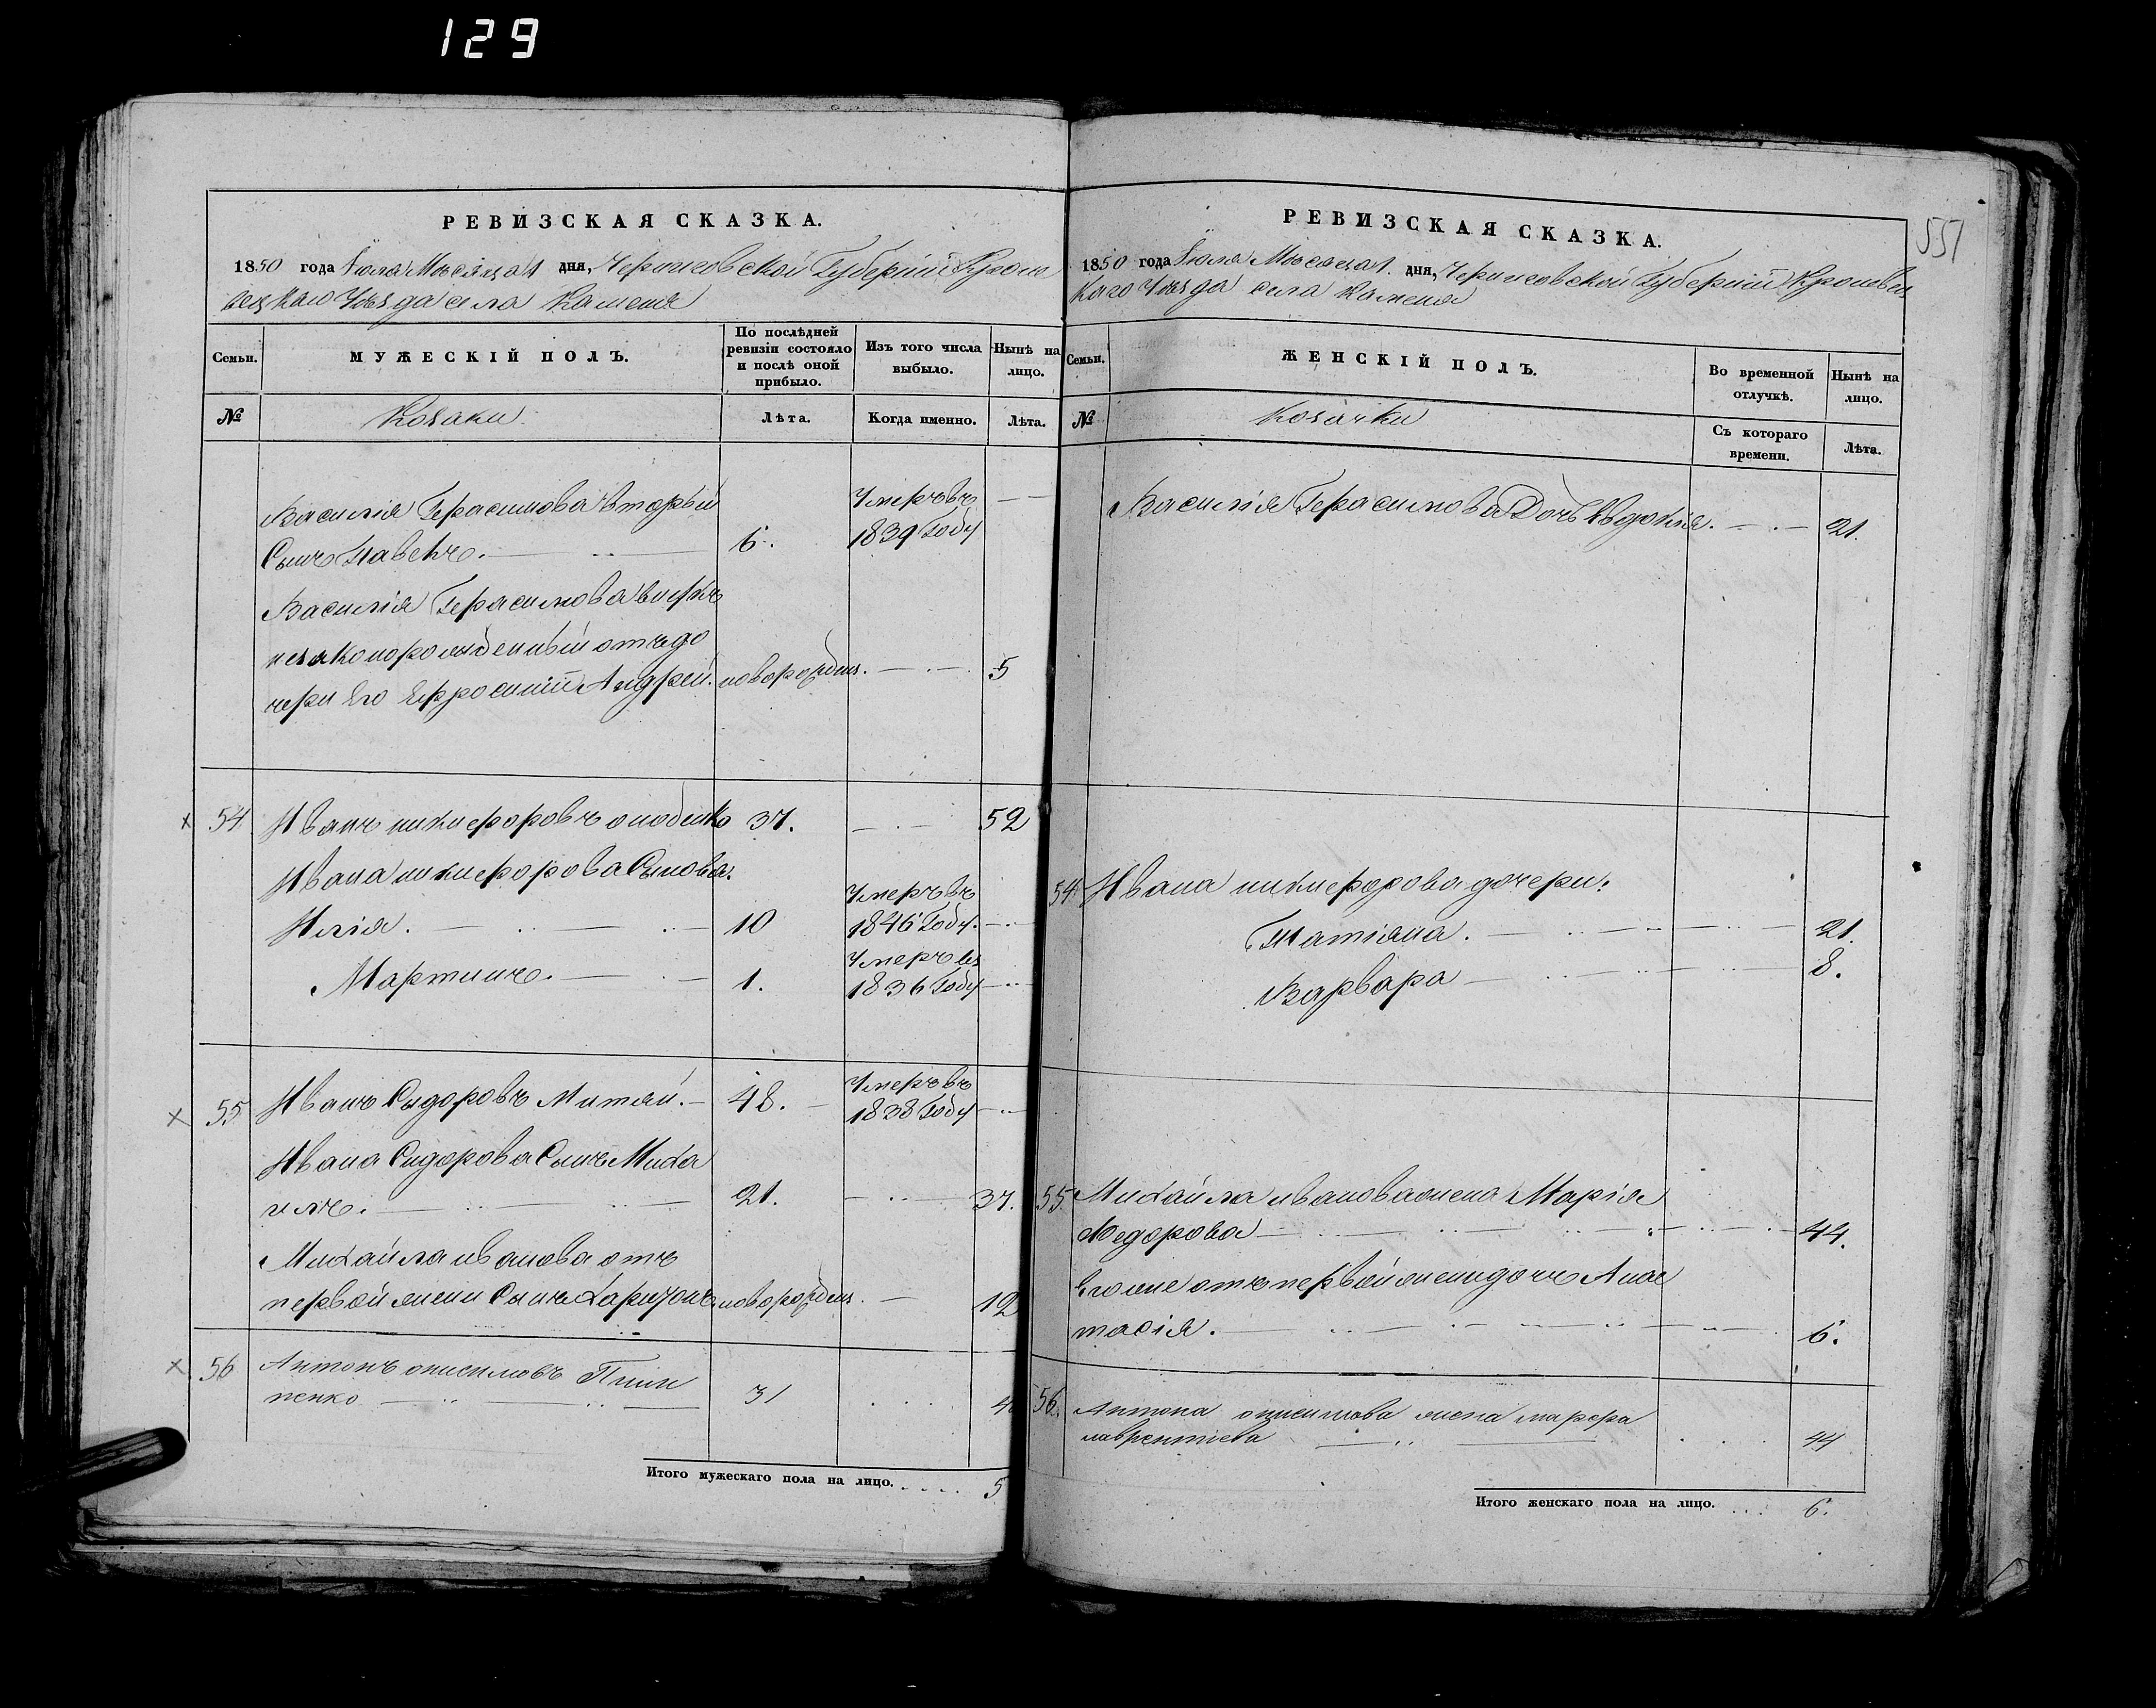 129
РЕВИЗСКАЯ СКАЗКА.
1850 года Іюля Мѣсяца 1 дня, Черниговской Губерніи Кроле
вецкаго Уѣзда села Каменя
Семьи.
МУЖЕСКІЙ ПОЛЪ.
По послѣдней
ревизіи состояло
и послѣ оной
прибыло.
Изъ того числа
выбыло.
Нынѣ на
лицо.
№
Козаки
Лѣта.
Когда именно.
Лѣта.
Василія Герасимова вторый
Сынъ Павелъ. 6. Умеръ въ
1839 Году
Василія Герасимова внукъ
незаконорожденный отъ до
чери Его Ефросиніи Андрей. новорожден. 5
54 Иванъ никифоровъ 37. 52
Ивана никифорова Сыновья.
Илія. 10 Умеръ въ
1846 Году.
Мартинъ. 1. Умеръ въ
1836 Году
55 Иванъ Сыдоровъ Митяй. 48. Умеръ въ
1838 Году
Ивана Сидорова Сынъ Миха
илъ. 21. 37.
Михайла иванова отъ
первой жены Сынъ Харитонъ новорожден. 12
56 Антонъ онисимовъ Пили
пенко 31
Итого мужескаго пола на лицо. 5
551
РЕВИЗСКАЯ СКАЗКА.
1850 года Іюля Мѣсяца 1. дня, Черниговской Губерніи Кролевец
каго Уѣзда села Каменя
Семьи.
ЖЕНСКІЙ ПОЛЪ.
Во временной
отлучкѣ.
Нынѣ на
лицо.
№
Козачки
Съ котораго
времени.
Лѣта.
Василія Герасимова Дочь Евдокія. 21.
54 Ивана никифорова дочери:
Татіяна. 21.
Варвара 8.
55. Михайла иванова жена Марія
Федорова 44.
Его же отъ первой жены дочь Анас
тасія. 6.
56. Антона онисимова жена марфа
лаврентіева 44
Итого женскаго пола на лицо. 6.